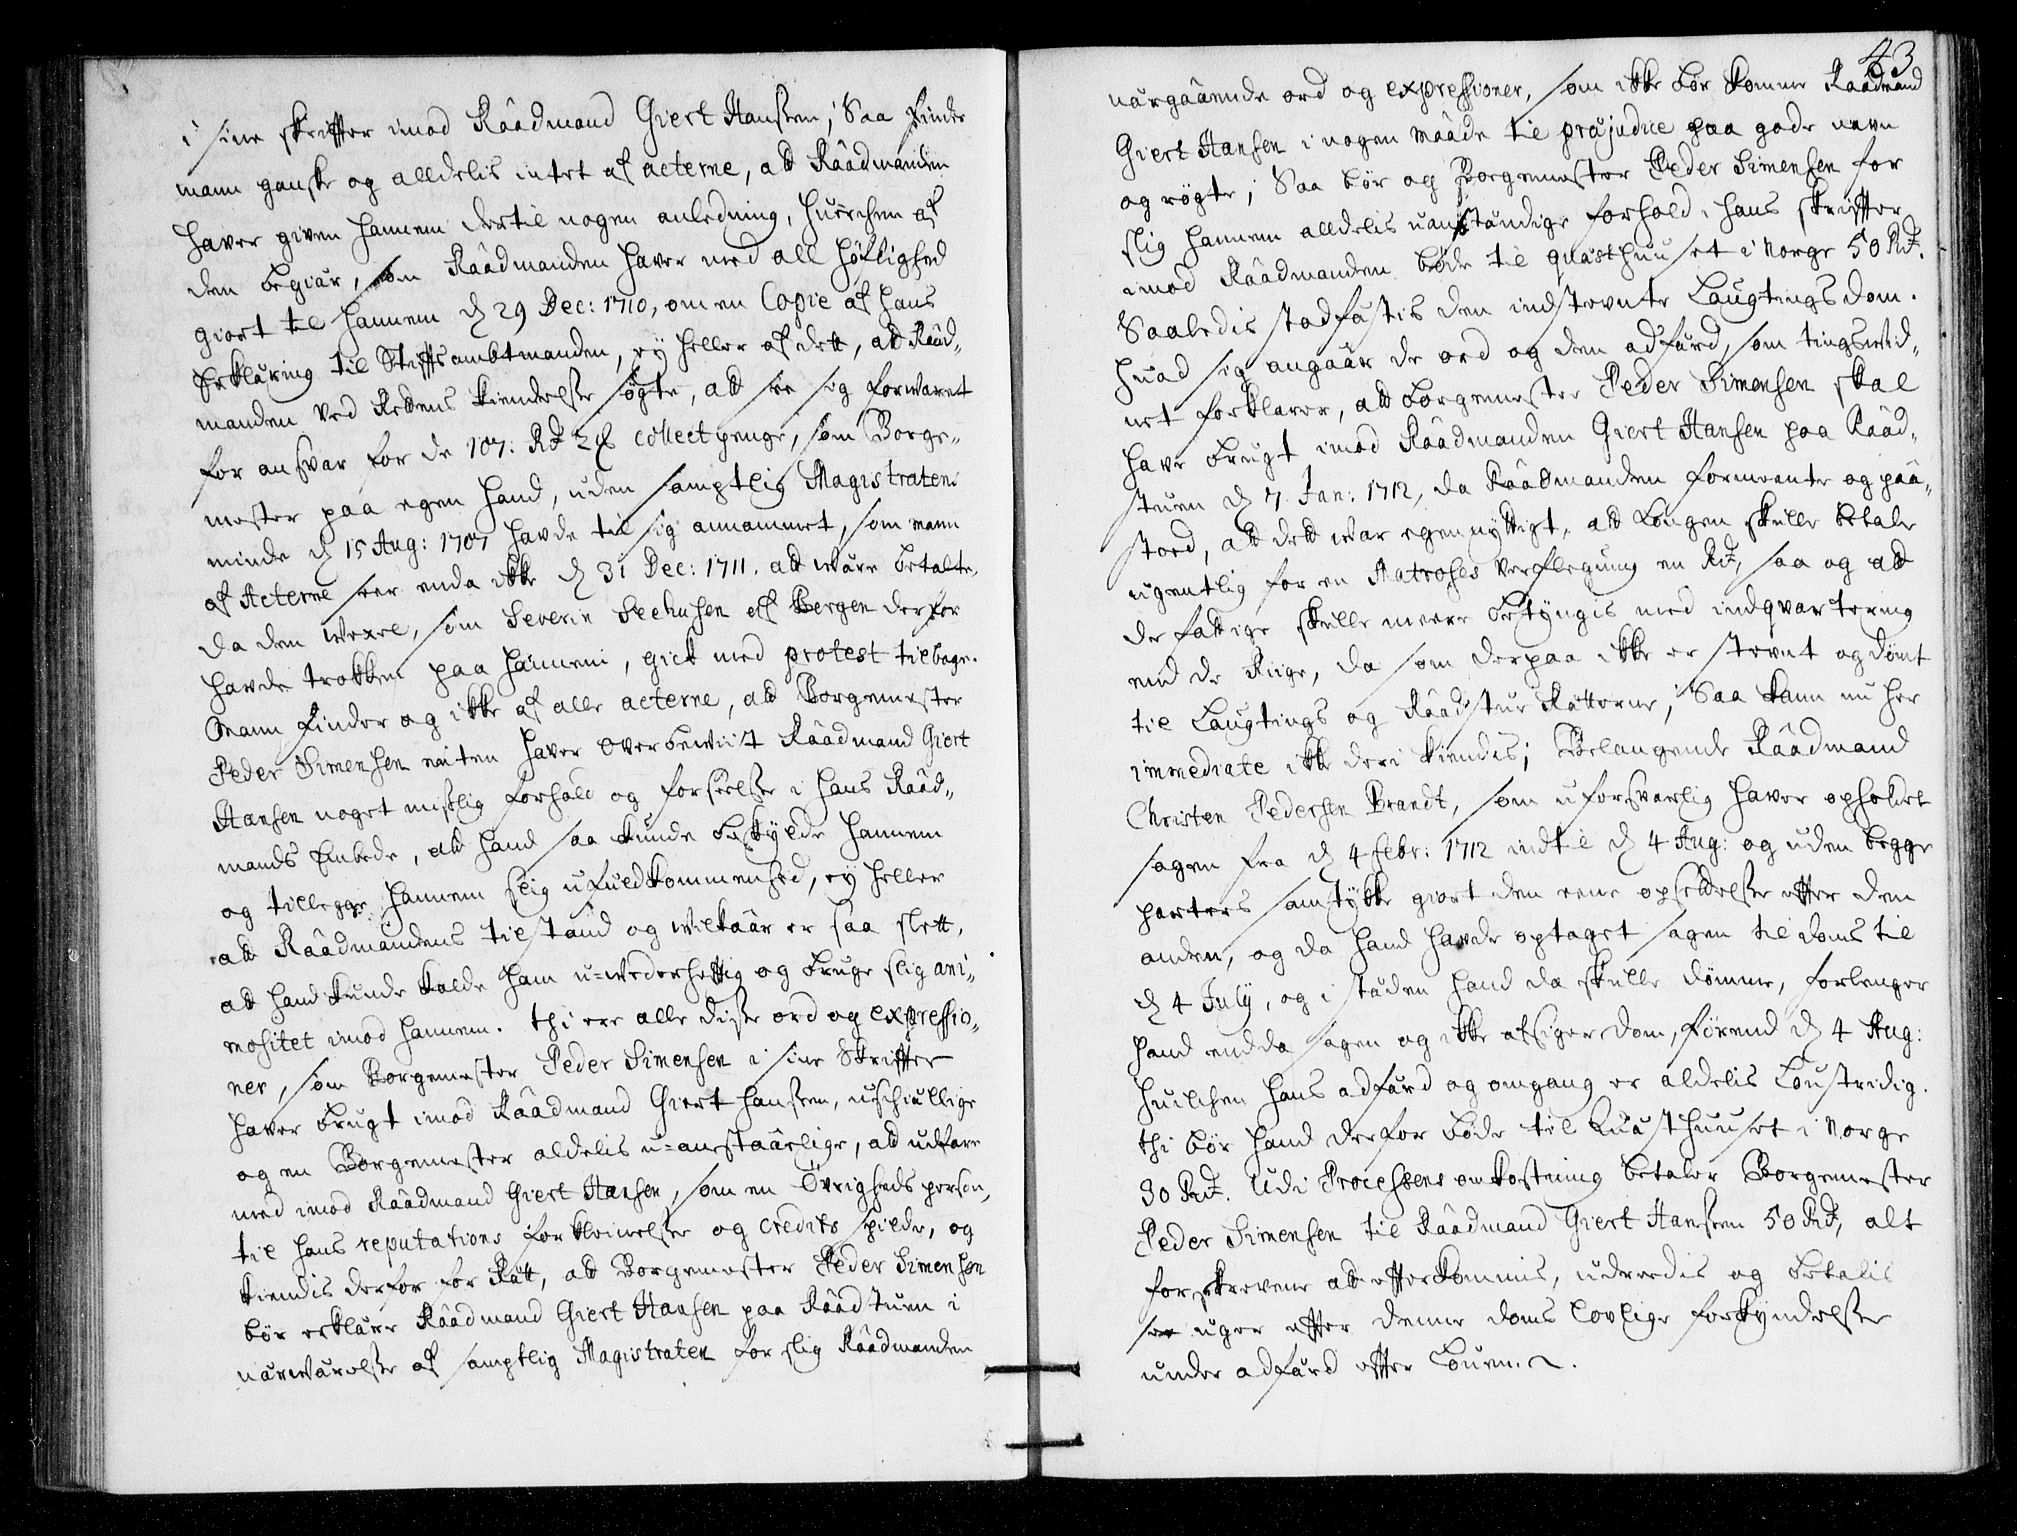 i sine skriffter imod Råådmand Giert Hanssen; Saa finder
mann ganske og alldelis intet af acterne, att Råådmanden
haver given hannem dertil nogen anledning, huerchen af
den begiär, som Råådmanden haver med all höflighed
giort til hannem d 29 Dec: 1710, om en Copie af hans
Erkläring til Stiffts ambtmanden, ey heller af dett, att Rååd„
manden ved Rettens kiendelse søgte, att see sig forwaret
for ansvar for de 107. Rd 2 ß collect penge, som Borge„
mester paa egen hand, uden samptlig Magistratens
minde d 15 Aug: 1707 havde til sig annammet, som mann
af Acterne seer enda ikke d 31 Dec: 1711. att wäre betalte,
da den wexel, som Severin Seehusen af Bergen derfor
havde trokken paa hannem, gick med protest tilbage.
Mann finder og ikke af alle acterne, att Borgemester
Peder Simensen enten haver overbewiist Råådmand Giert
Hansen noget mislig forhold og forseelse i hans Rååd„
mands Embede, att hand saa kunde beskylde hannem
og tillegge hannem slig ufuldkommenhed, ey heller
att Råådmandens tilstand og wilkåår er saa slett,
att hand kunde kalde ham u=wederhefftig og bruge slig ani„
mositet imod hannem. thi ere alle disse ord og expressio„
ner, som Borgemester Peder Simensen i sine Skriffter
haver brugt imod Råådmand Giert Hanssen, uschiellige
og en Borgemester aldelis u=anstäärlige, att udfare
med imod Råådmand Giert Hansen, som en Övrigheds person,
til hans reputations forkleinelse og credits spilde, og
kiendis derfor for Rätt, att Borgemester Peder Simensen
bör erkläre Råådmand Giert Hansen paa Råådstuen i
närwärelse af samptlig Magistraten for slig Råådmanden
43
närgåående ord og expressioner, som ikke bör komme Råådmand
Giert Hansen i nogen mååde til præjudice paa gode navn
og rögte; Saa bör og Borgemester Peder Simensen for
slig hannem alldelis uanständige forhold i hans skriffter
imod Råådmanden böde til quästhuuset i Norge 50 Rd.
Saaledis stadfästis den indstevnte Laugtings dom.
Huad sig angåår de ord og den adfärd, som tingswid„
net forklarer, att Borgemester Peder Simensen skal
have brugt imod Råådmanden Giert Hansen paa Rååd„
stuen d 7. Jan: 1712, da Råådmanden formeente og påå„
stoed, att dett war egennyttigt, att Borgen skulle betale
ugentlig for en Matroses Verflegung en Rd, saa og att
de fattige skulle meere betyngis med indqvartering
end de Riige, da som derpaa ikke er stevnt og dömt
til Laugtings og Råådstue Rätterne; Saa kann nu her
immediate ikke deri kiendis; Belangende Råådmand
Christen Pedersen Brandt, som uforsvarlig haver opholdet
sagen fra d 4 febr: 1712 indtil d 4 Aug: og uden begge
parters samtykke giort den eene opsettelse effter den
anden, og da hand havde optaget sagen til doms til
d 4 July, og i städen hand da skulle dömme, forlenger
hand endda sagen og ikke afsiger dom, förend d 4 Aug:
Huilchen hans adfärd og omgang er aldelis Loustridig.
thi bör hand derfor böde til Quästhuuset i Norge
30 Rd. Udi Processens omkostning betaler Borgemester
Peder Simensen til Råådmand Giert Hanssen 50 Rd, alt
forskrevene att effterkommis, udreedis og betalis
sex uger effter denne doms lovlige forkyndelse
under adfärd effter Louen.